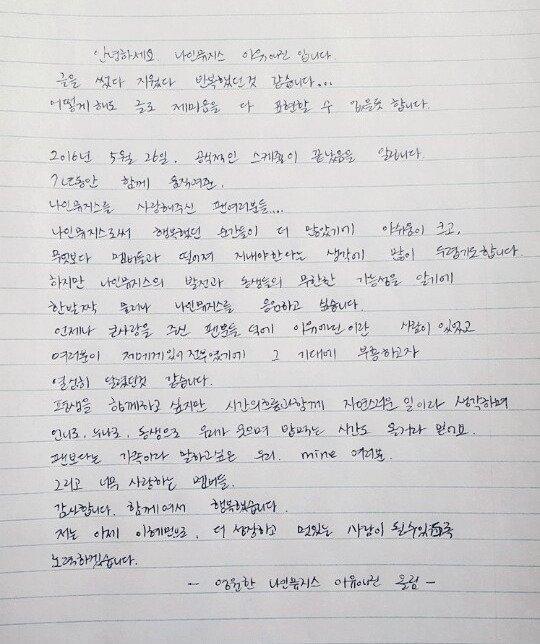 안녕하세요. 나인뮤지스 이유애린 입니다.
글을 썼다 지웠다 반복했던것 같습니다...
어떻게 해도 글로 제마음을 다 표현할 수 없을듯 합니다.
2016년 5월 26일. 공식적인 스케줄이 끝났음을 알립니다.
7년동안 함께 움직여준,
나인뮤지스를 사랑해주신 팬여러분들....
나인뮤지스로써 행복했던 순간들이 더 많았기에 아쉬움이 크고,
무엇보다 멤버들과 떨어져 지내야한다는 생각에 많이 두렵기도합니다.
하지만 나인뮤지스의 발전과 동생들의 무한한 가능성을 알기에
한발짝 물러나 나인뮤지스를 응원하고 싶습니다.
언제나 큰사랑을 주신 팬분들 덕에 이유애린이란 사람이 있었고
여러분이 제에게있어 전부였기에 그 기대에 부흥하고자
열심히 달렸던것 같습니다.
평생을 함께하고 싶지만 시간의흐름과함께 자연스러운 일이라 생각하며
언니로, 누나로, 동생으로 우리가 웃으며 밥먹는 시간도 올거라 믿어요.
팬보다는 가족이라 말하고싶은 우리. mine 여러분.
그리고 너무 사랑하는 멤버들.
감사합니다. 함께여서 행복했습니다.
저는 이제 이혜민으로, 더 성장하고 멋있는 사람이 될수있도록
노력하겠습니다.
- 영원한 나인뮤지스 이유애린 올림 -